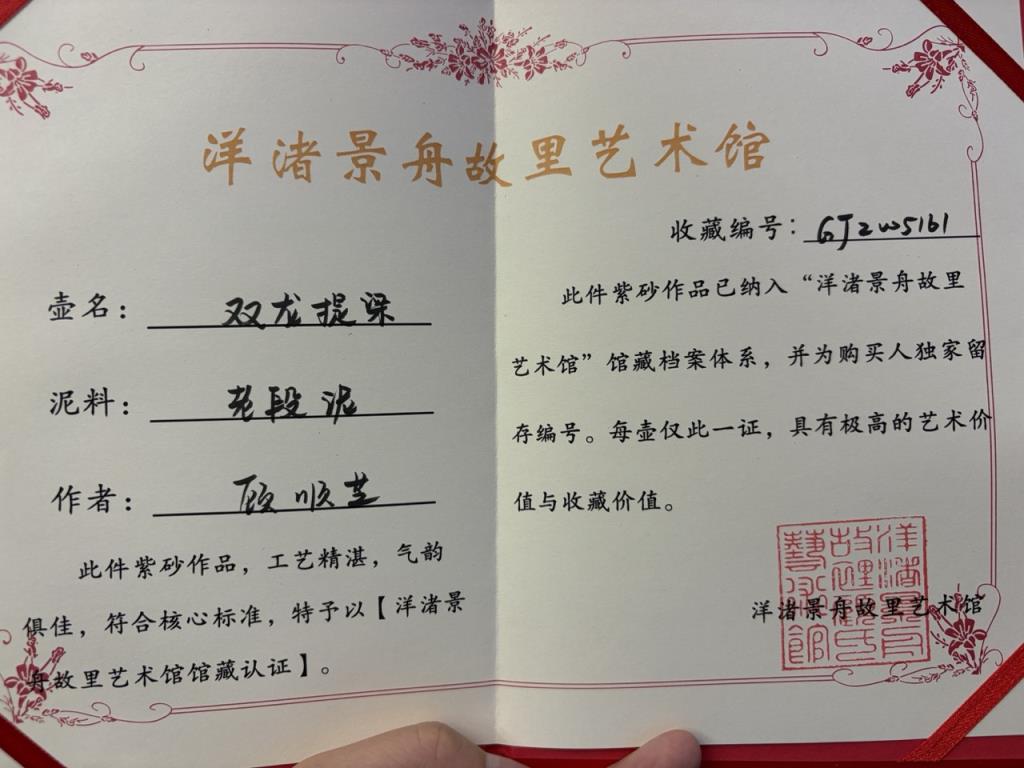 洋渚景舟故里艺术馆
壶名：双龙提梁
泥料：老段泥
作者：顾顺芝
此件紫砂作品，工艺精湛，气韵
俱佳，符合核心标准，特予以【洋渚景
舟故里艺术馆馆藏认证】。
收藏编号：GJZW5161
此件紫砂作品已纳入“洋渚景舟故里
艺术馆”馆藏档案体系，并为购买人独家留
存编号。每壶仅此一证，具有极高的艺术价
值与收藏价值。
洋渚景舟故里艺术馆